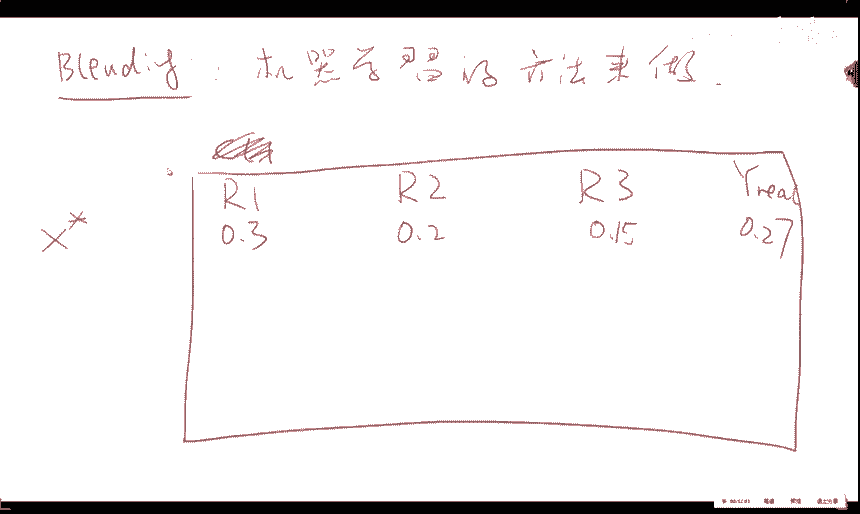 Blending: 机器学习的方法来做.
R1 R2 R3 Yreal
X* 0.3 0.2 0.15 0.27